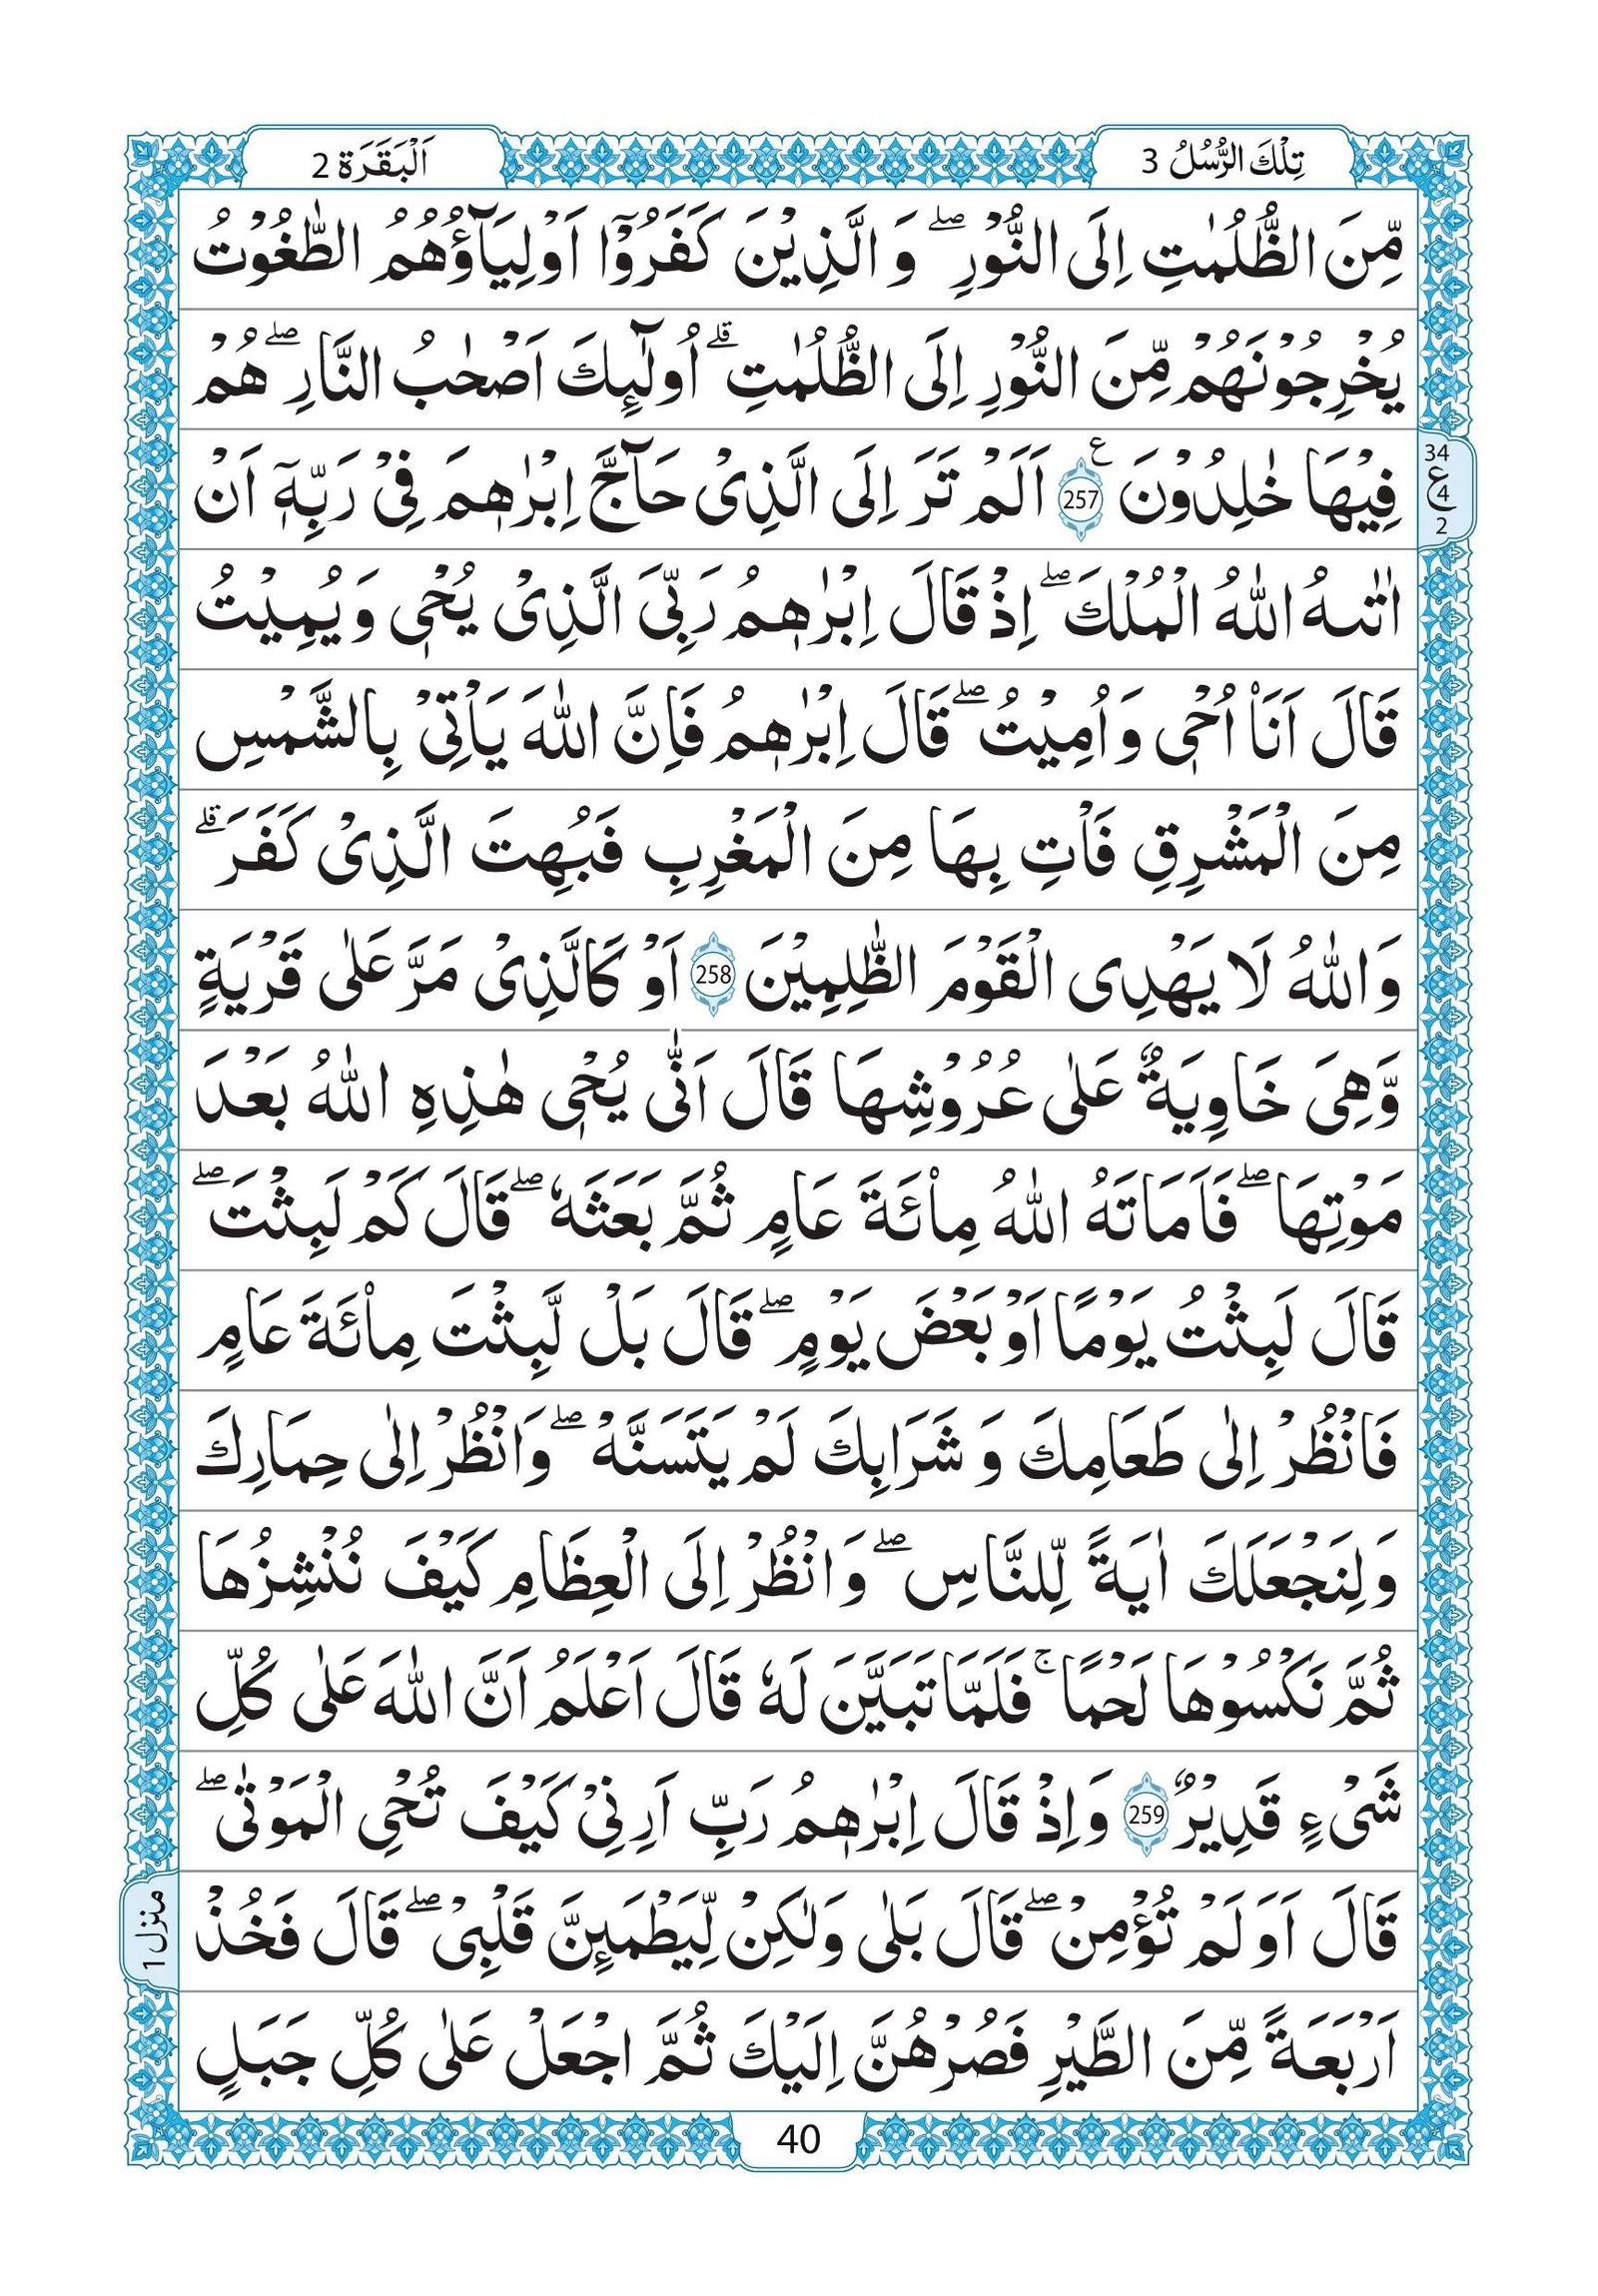 تِلْكَ الرُّسُلُ 3
اَلْبَقَرَة 2
مِّنَ الظُّلُمٰتِ اِلَى النُّوْرِ ۖ وَ الَّذِيْنَ كَفَرُوْۤا اَوْلِيَآؤُهُمُ الطّٰغُوْتُ
يُخْرِجُوْنَهُمْ مِّنَ النُّوْرِ اِلَى الظُّلُمٰتِ ۗ اُولٰٓئِكَ اَصْحٰبُ النَّارِ ۖ هُمْ
فِيْهَا خٰلِدُوْنَ ع 257 اَلَمْ تَرَ اِلَى الَّذِىْ حَآجَّ اِبْرٰهٖمَ فِىْ رَبِّهٖۤ اَنْ
34 ع 4 2
اٰتٰىهُ اللّٰهُ الْمُلْكَ ۖ اِذْ قَالَ اِبْرٰهٖمُ رَبِّىَ الَّذِىْ يُحْىٖ وَ يُمِيْتُ
قَالَ اَنَا۠ اُحْىٖ وَ اُمِيْتُ ۖ قَالَ اِبْرٰهٖمُ فَاِنَّ اللّٰهَ يَاْتِىْ بِالشَّمْسِ
مِنَ الْمَشْرِقِ فَاْتِ بِهَا مِنَ الْمَغْرِبِ فَبُهِتَ الَّذِىْ كَفَرَ ۗ
وَاللّٰهُ لَا يَهْدِى الْقَوْمَ الظّٰلِمِيْنَ 258 اَوْ كَالَّذِىْ مَرَّ عَلٰى قَرْيَةٍ
وَّهِىَ خَاوِيَةٌ عَلٰى عُرُوْشِهَا قَالَ اَنّٰى يُحْىٖ هٰذِهِ اللّٰهُ بَعْدَ
مَوْتِهَا ۖ فَاَمَاتَهُ اللّٰهُ مِا۟ئَةَ عَامٍ ثُمَّ بَعَثَهٗ ۖ قَالَ كَمْ لَبِثْتَ ۖ
قَالَ لَبِثْتُ يَوْمًا اَوْ بَعْضَ يَوْمٍ ۖ قَالَ بَلْ لَّبِثْتَ مِا۟ئَةَ عَامٍ
فَانْظُرْ اِلٰى طَعَامِكَ وَ شَرَابِكَ لَمْ يَتَسَنَّهْ ۖ وَانْظُرْ اِلٰى حِمَارِكَ
وَلِنَجْعَلَكَ اٰيَةً لِّلنَّاسِ ۖ وَ انْظُرْ اِلَى الْعِظَامِ كَيْفَ نُنْشِزُهَا
ثُمَّ نَكْسُوْهَا لَحْمًا ۚ فَلَمَّا تَبَيَّنَ لَهٗ قَالَ اَعْلَمُ اَنَّ اللّٰهَ عَلٰى كُلِّ
شَىْءٍ قَدِيْرٌ 259 وَاِذْ قَالَ اِبْرٰهٖمُ رَبِّ اَرِنِىْ كَيْفَ تُحْىِ الْمَوْتٰى ۖ
قَالَ اَوَ لَمْ تُؤْمِنْ ۖ قَالَ بَلٰى وَلٰكِنْ لِّيَطْمَئِنَّ قَلْبِىْ ۖ قَالَ فَخُذْ
منزل 1
اَرْبَعَةً مِّنَ الطَّيْرِ فَصُرْهُنَّ اِلَيْكَ ثُمَّ اجْعَلْ عَلٰى كُلِّ جَبَلٍ
40